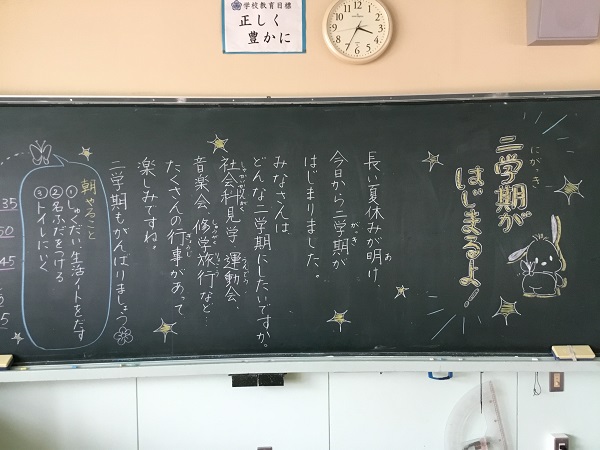 学校教育目標
正しく
豊かに
二学期が
にがっき
はじまるよ!
長い夏休みが明け、
あ
今日から二学期が
がっき
はじまりました。
みなさんは
どんな二学期にしたいですか。
社会科見学 運動会、
しゃかいかけんがく
うんどう
音楽会、修学旅行など…
しゅうがくりょこう
たくさんの行事があって
ぎょうじ
楽しみですね。
二学期もがんばりましょう
朝やること
①しゅくだい、生活ノートをだす
②名ふだをつける
③トイレにいく
35
50
45
5